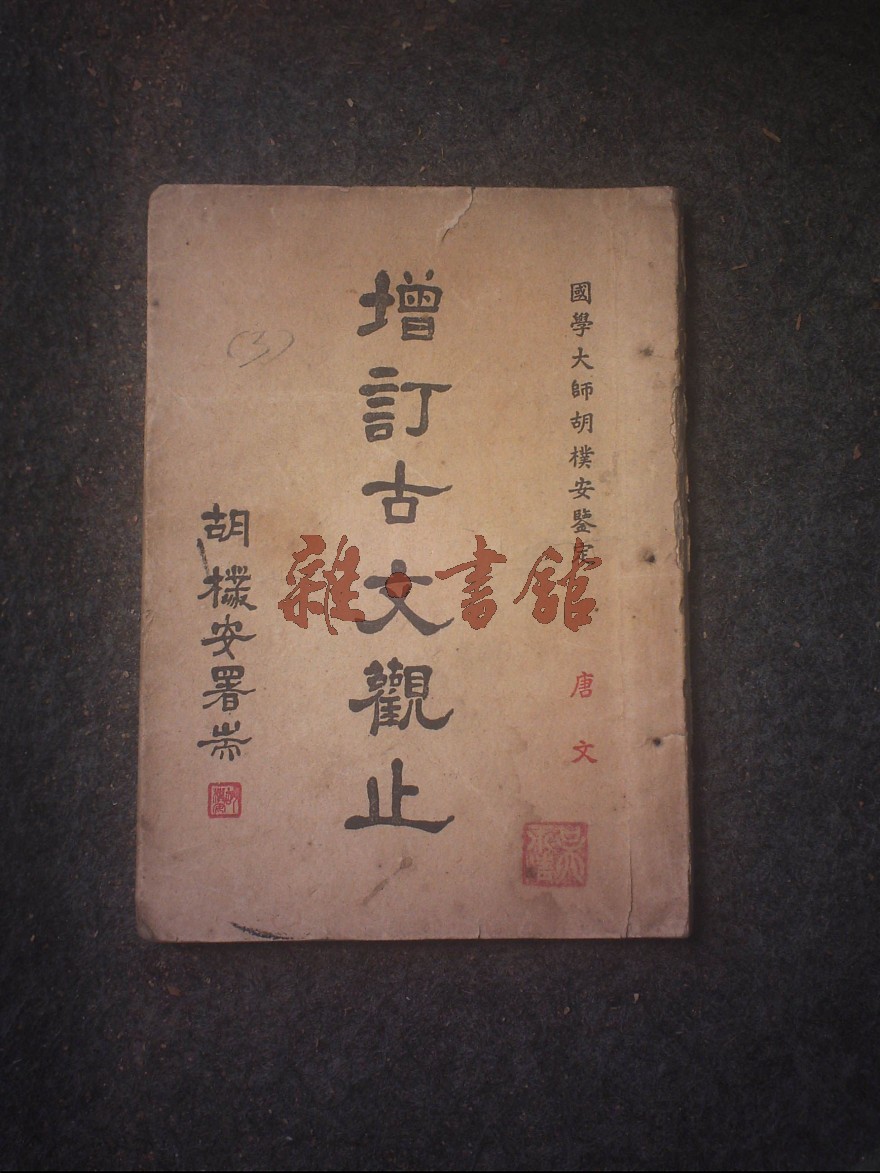 國學大師胡樸安鑒定
唐文
增訂古文觀止
胡樸安署耑
(3)
雜·書館